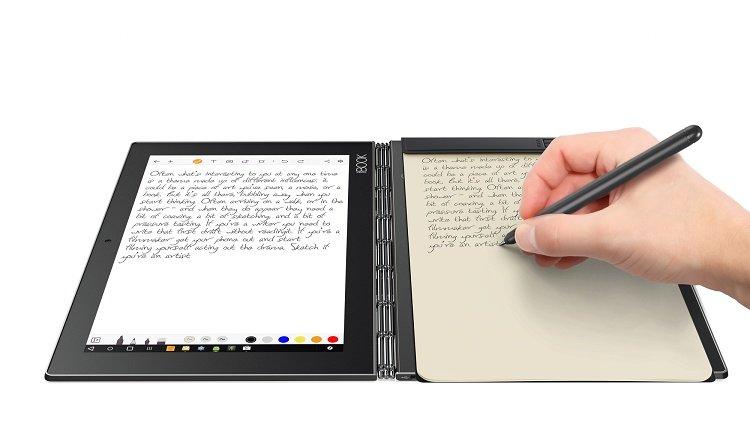 Often what's interesting to you at any one time
is a thema made up of different influences, it
could be a piece of art you've seen, a movie, or a
book. But it's all there, bubbling away when you
start thinking. Often working on a walk, or in the
shower - and when they do appear they need a
bit of craving, a bit of sketching, and a bit of
pressure tasting. If you're a writer you need to
write that first draft without reading it. If you're a
filmmaker get your phone out and start
filming yourself acting out the drama. Sketch if
you're an artist
BOOK
Often what's interesting to you at any one
is a thema made up of different influences, it
could be a piece of art you've seen
book. But it's all there, bubbling
start thinking. Often
shower - and when
bit of craving, a bit of
pressure tasting. If you
write that first draft
filmmaker get your
filming yourself
you're an artist